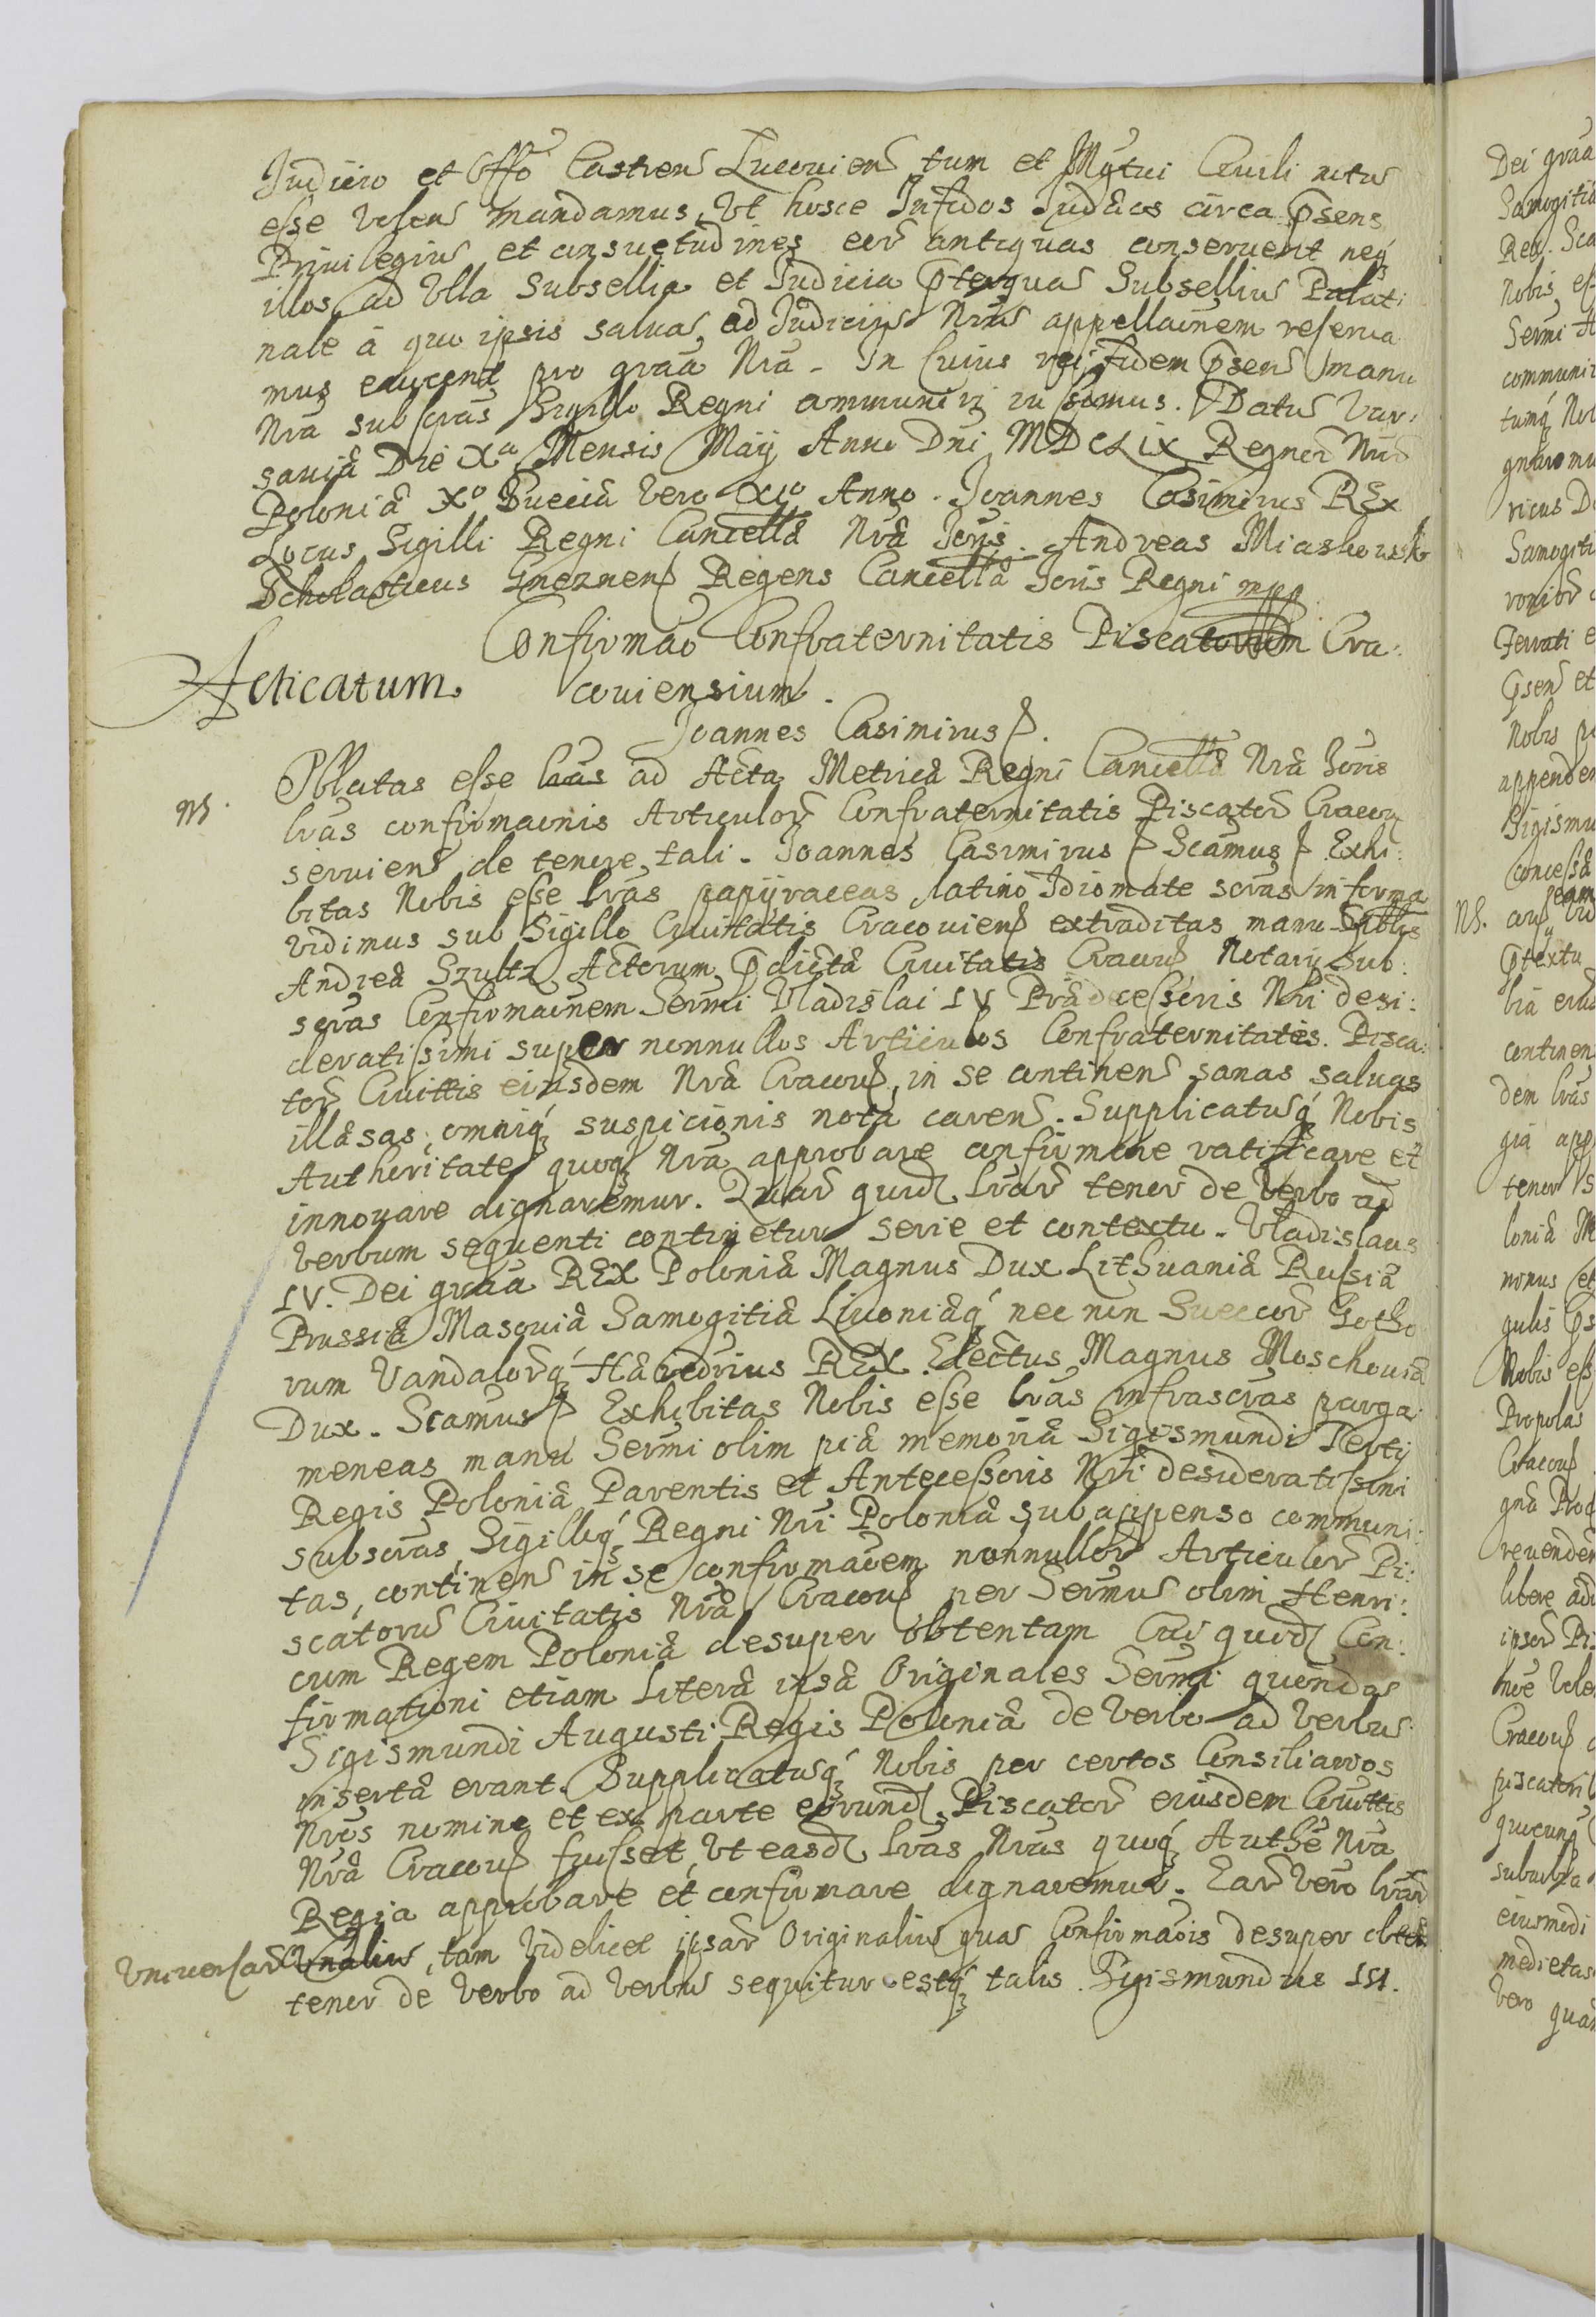 Judicio et Offō Castren Lucoviens tum et Mytui Civili notus
esse volens mandamus, Ut hosce Infidos Judæos circa p̄sens
Privilegiū et consuetudines eor̄ antiquas conservent neq́
illos ad Ulla Subsellia et Judicia p̄terquā Subselliū Palati
nale à quo ipsis salvā ad Judiciū Nrūm appellaōnem reserva
mus evocent pro graā Nrā. In Cuius rei fidem p̄sens manu
Nrā subscrās Sigillo Regni communiri iussimus. Datū Var:
saviæ Die Xa Mensis Maij Anno Dni MDCLIX Regnor̄ Nrōr̄
Poloniæ Xo Sueciæ Vero XIo Anno. Joannes Casimirus REX
Locus Sigilli Regni Cancellæ Nræ Joris. Andreas Miaskowski
Scholasticus Gneznens Regens Cancellæ Joris Regni mpp
Confirmāo Confraternitatis Piscatorum Cra:
Acticatum. coviensium.
Joannes Casimirus
Oblatas esse ad Acta Metricæ Regni Cancellæ Nræ Joris
NS. lrās confirmaōnis Articulor̄ Confraternitatis Piscator̄ Cracov
serviens de tenore tali. Joannes Casimirus Scāmus Exhi:
bitas Nobis esse lrās papyraceas latino Idiomate scrās in forma
Vidimus sub Sigillo Civitatis Cracoviens extraditas manu Spblis
Andreæ Szultz Actorum p̄dictæ Civitatis Cracov Notarij Sub:
scrās Confirmaōnem Sermi Vladislai IV Prædecessoris Nri desi:
deratissimi super nonnullos Articulos Confraternitates Pisca:
tor̄ Civittis eiusdem Nræ Cracov, in se continens sanas salvas
illæsas, omniq́ suspicionis notā carens. Supplicatūq́ Nobis
Authoritate quoq́ Nrā approbare confirmare ratificare et
innovare dignaremur. Quar̄ quid lrār̄ tenor de Verbo ad
Verbum sequenti continetur serie et contextu. Vladislaus
IV. Dei graā REX Poloniæ Magnus Dux Lithuaniæ Russiæ
Prussiæ Masoviæ Samogitiæ Livoniæq́ nec non Suecor̄ Gotho
rum Vandalor̄q́ Hæredrius REX. Electus Magnus Moschoviæ
Dux. Scāmus Exhibitas Nobis esse lrās infrascrās parga
meneas manu Sermi olim piæ memoriæ Sigismundi Tertij
Regis Poloniæ Parentis et Antecessoris Nri desideratissimi
subscrās, Sigilloq́ Regni Nri Poloniæ subappenso communi
tas, continens in se confirmaōem nonnullor̄ Articulor̄ Pi:
scatorū Civitatis Nræ Cracov per Sermū olim Henri:
cum Regem Poloniæ desuper obtentam Cui quid Con:
firmationi etiam Literæ ipsæ Originales Sermi quondā
Sigismundi Augusti Regis Poloniæ de Verbo ad Verbū
insertæ erant. Supplicatūq́ Nobis per certos Consiliarios
Nrōs nomine et ex parte eorund Piscator̄ eiusdem Civittis
Nræ Cracov fuisset, Ut easd lrās Nrās quoq́ Authe Nrā
Regia approbare et confirmare dignaremur. Ear̄ Vero lrār̄
Universar̄ tam Videlicet ipsar̄ Originaliū quā Confirmaōis desuper obtæ
tenor de Verbo ad Verbū sequitur estq́ talis. Sigismundus III.
Dei graā
Samogitiæ
Nobis
Sermi
communi
Samogiti
Ferrati
p̄sens et
Nobis
appenden
Sigismu
concessæ
NS.
p̄textu
continen
dem lrās
tenor
loniæ M
nonus et
gulis
Nobis ess
Propolas
Cracov
revenden
libere
Cracov
piscatori
suburbia
eiusmodi
medietas
Vero quam